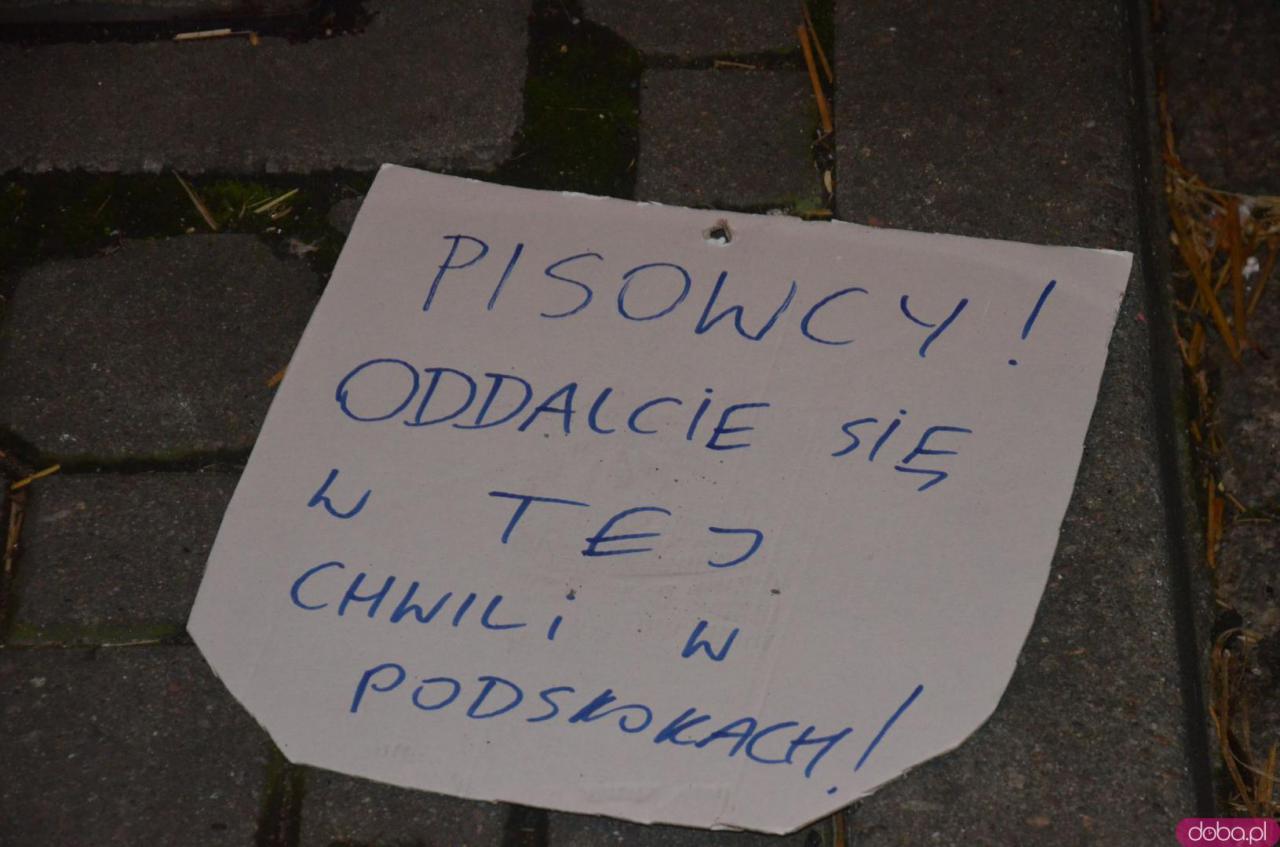 PISOWCY!
ODDALCIE SIĘ
W TEJ
CHWILI W
PODSKOKACH!
doba.pl